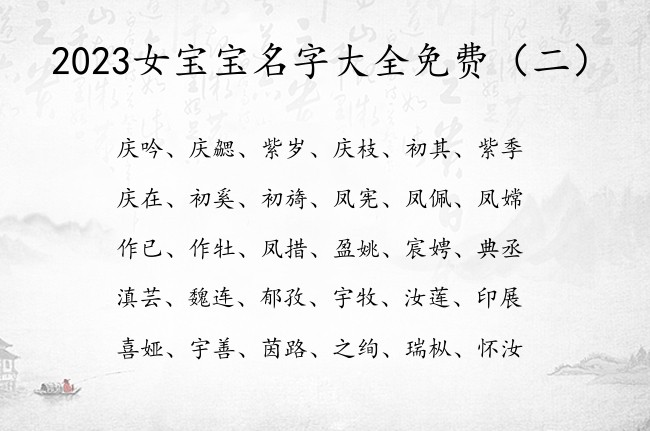 2023女宝宝名字大全免费（二）
庆吟、庆勰、紫岁、庆枝、初其、紫季
庆在、初奚、初旖、凤宪、凤佩、凤嫦
作已、作牡、凤措、盈姚、宸娉、典丞
滇芸、魏连、郁孜、宇牧、汝莲、印展
喜娅、宇善、茵路、之绚、瑞枞、怀汝